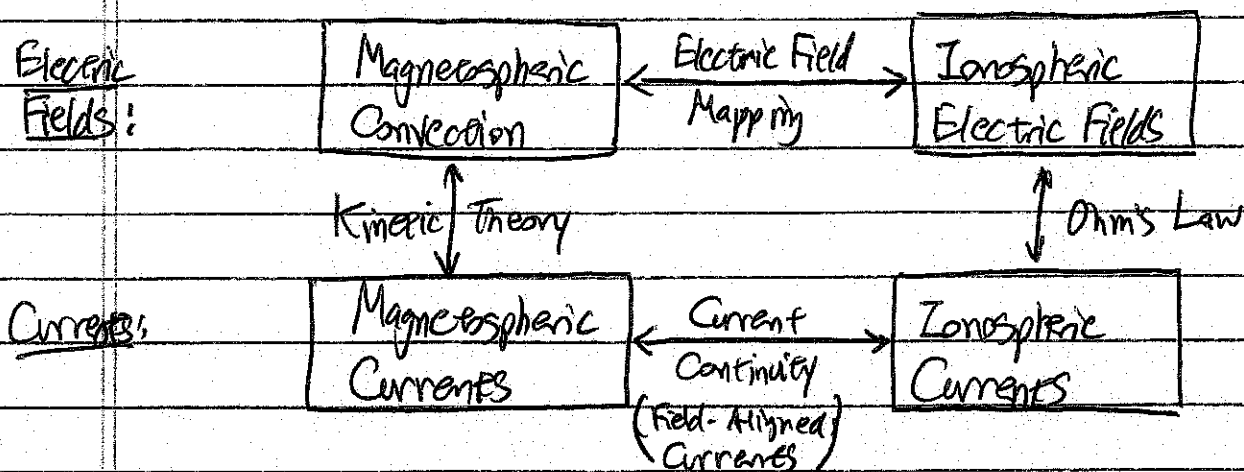 Electric
Fields:
Magnetospheric
Convection
Electric Field
Mapping
Ionospheric
Electric Fields
Kinetic Theory
Ohm's Law
Currents:
Magnetospheric
Currents
Current
Continuity
(Field-Aligned
Currents)
Ionospheric
Currents